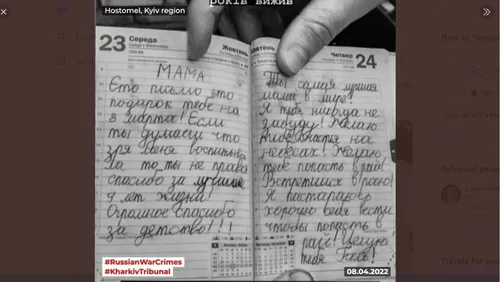 Hostomel, Kyiv region
років вижив
23 Середа
Жовтень
МАМА
Єто письмо это
подарок тебе на
8 марта! Если
ты думаеш что
зря меня воспитывала
За то ты не права
спасибо за лучшие
9 лет жизни!
Огромное спасибо
за детство!!!
Жовтень
Четвер 24
Ты самая лучшая
мама в мире!
Я тебя никогда не
забуду! Желаю
тебе счастья на
небесах! Желаю
тебе попасть в рай!
Встретимся в раю!
Я постараюсь
хорошо себя вести
чтобы попасть в
рай! Целую
тебя
#RussianWarCrimes
#KharkivTribunal
08.04.2022